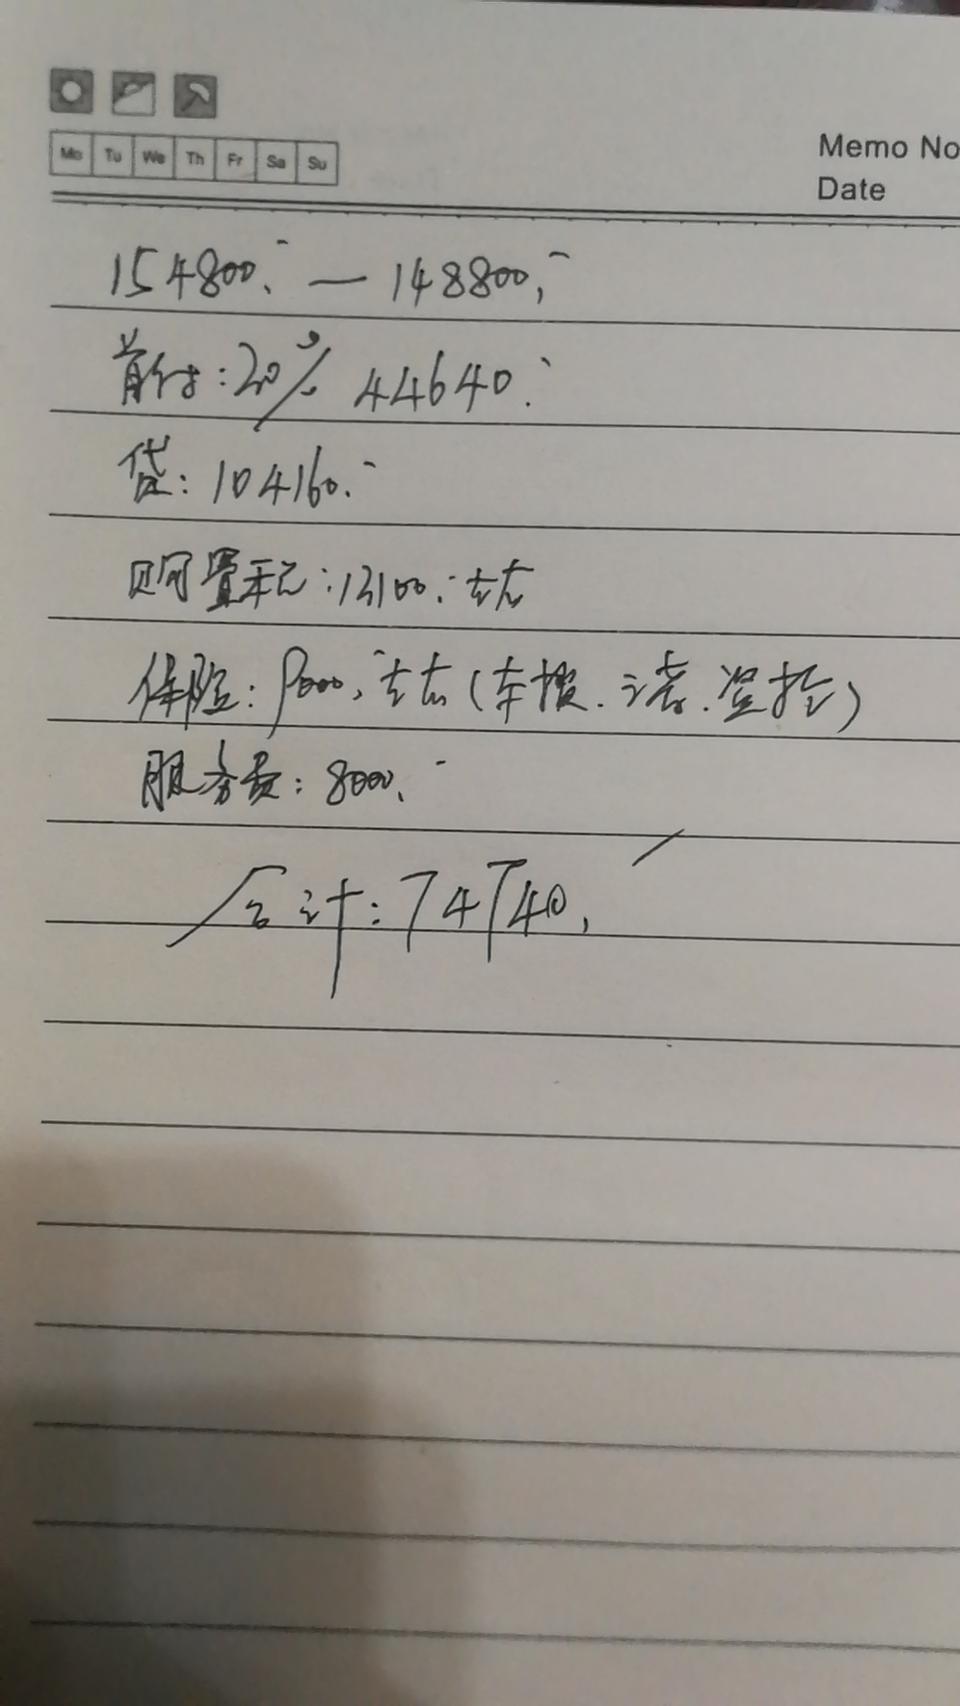 Mo Tu We Th Fr Sa Su
Memo No
Date
154800.- — 148800.-
首付:20% 44640.-
贷:104160.-
购置税:13100.-左右
保险:9000.-左右(车损.三者.盗抢)
服务费:8000.-
合计:74740.-